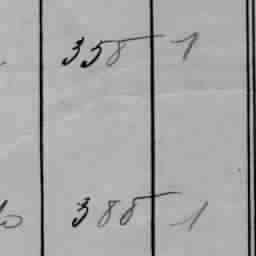 358 1
388 1